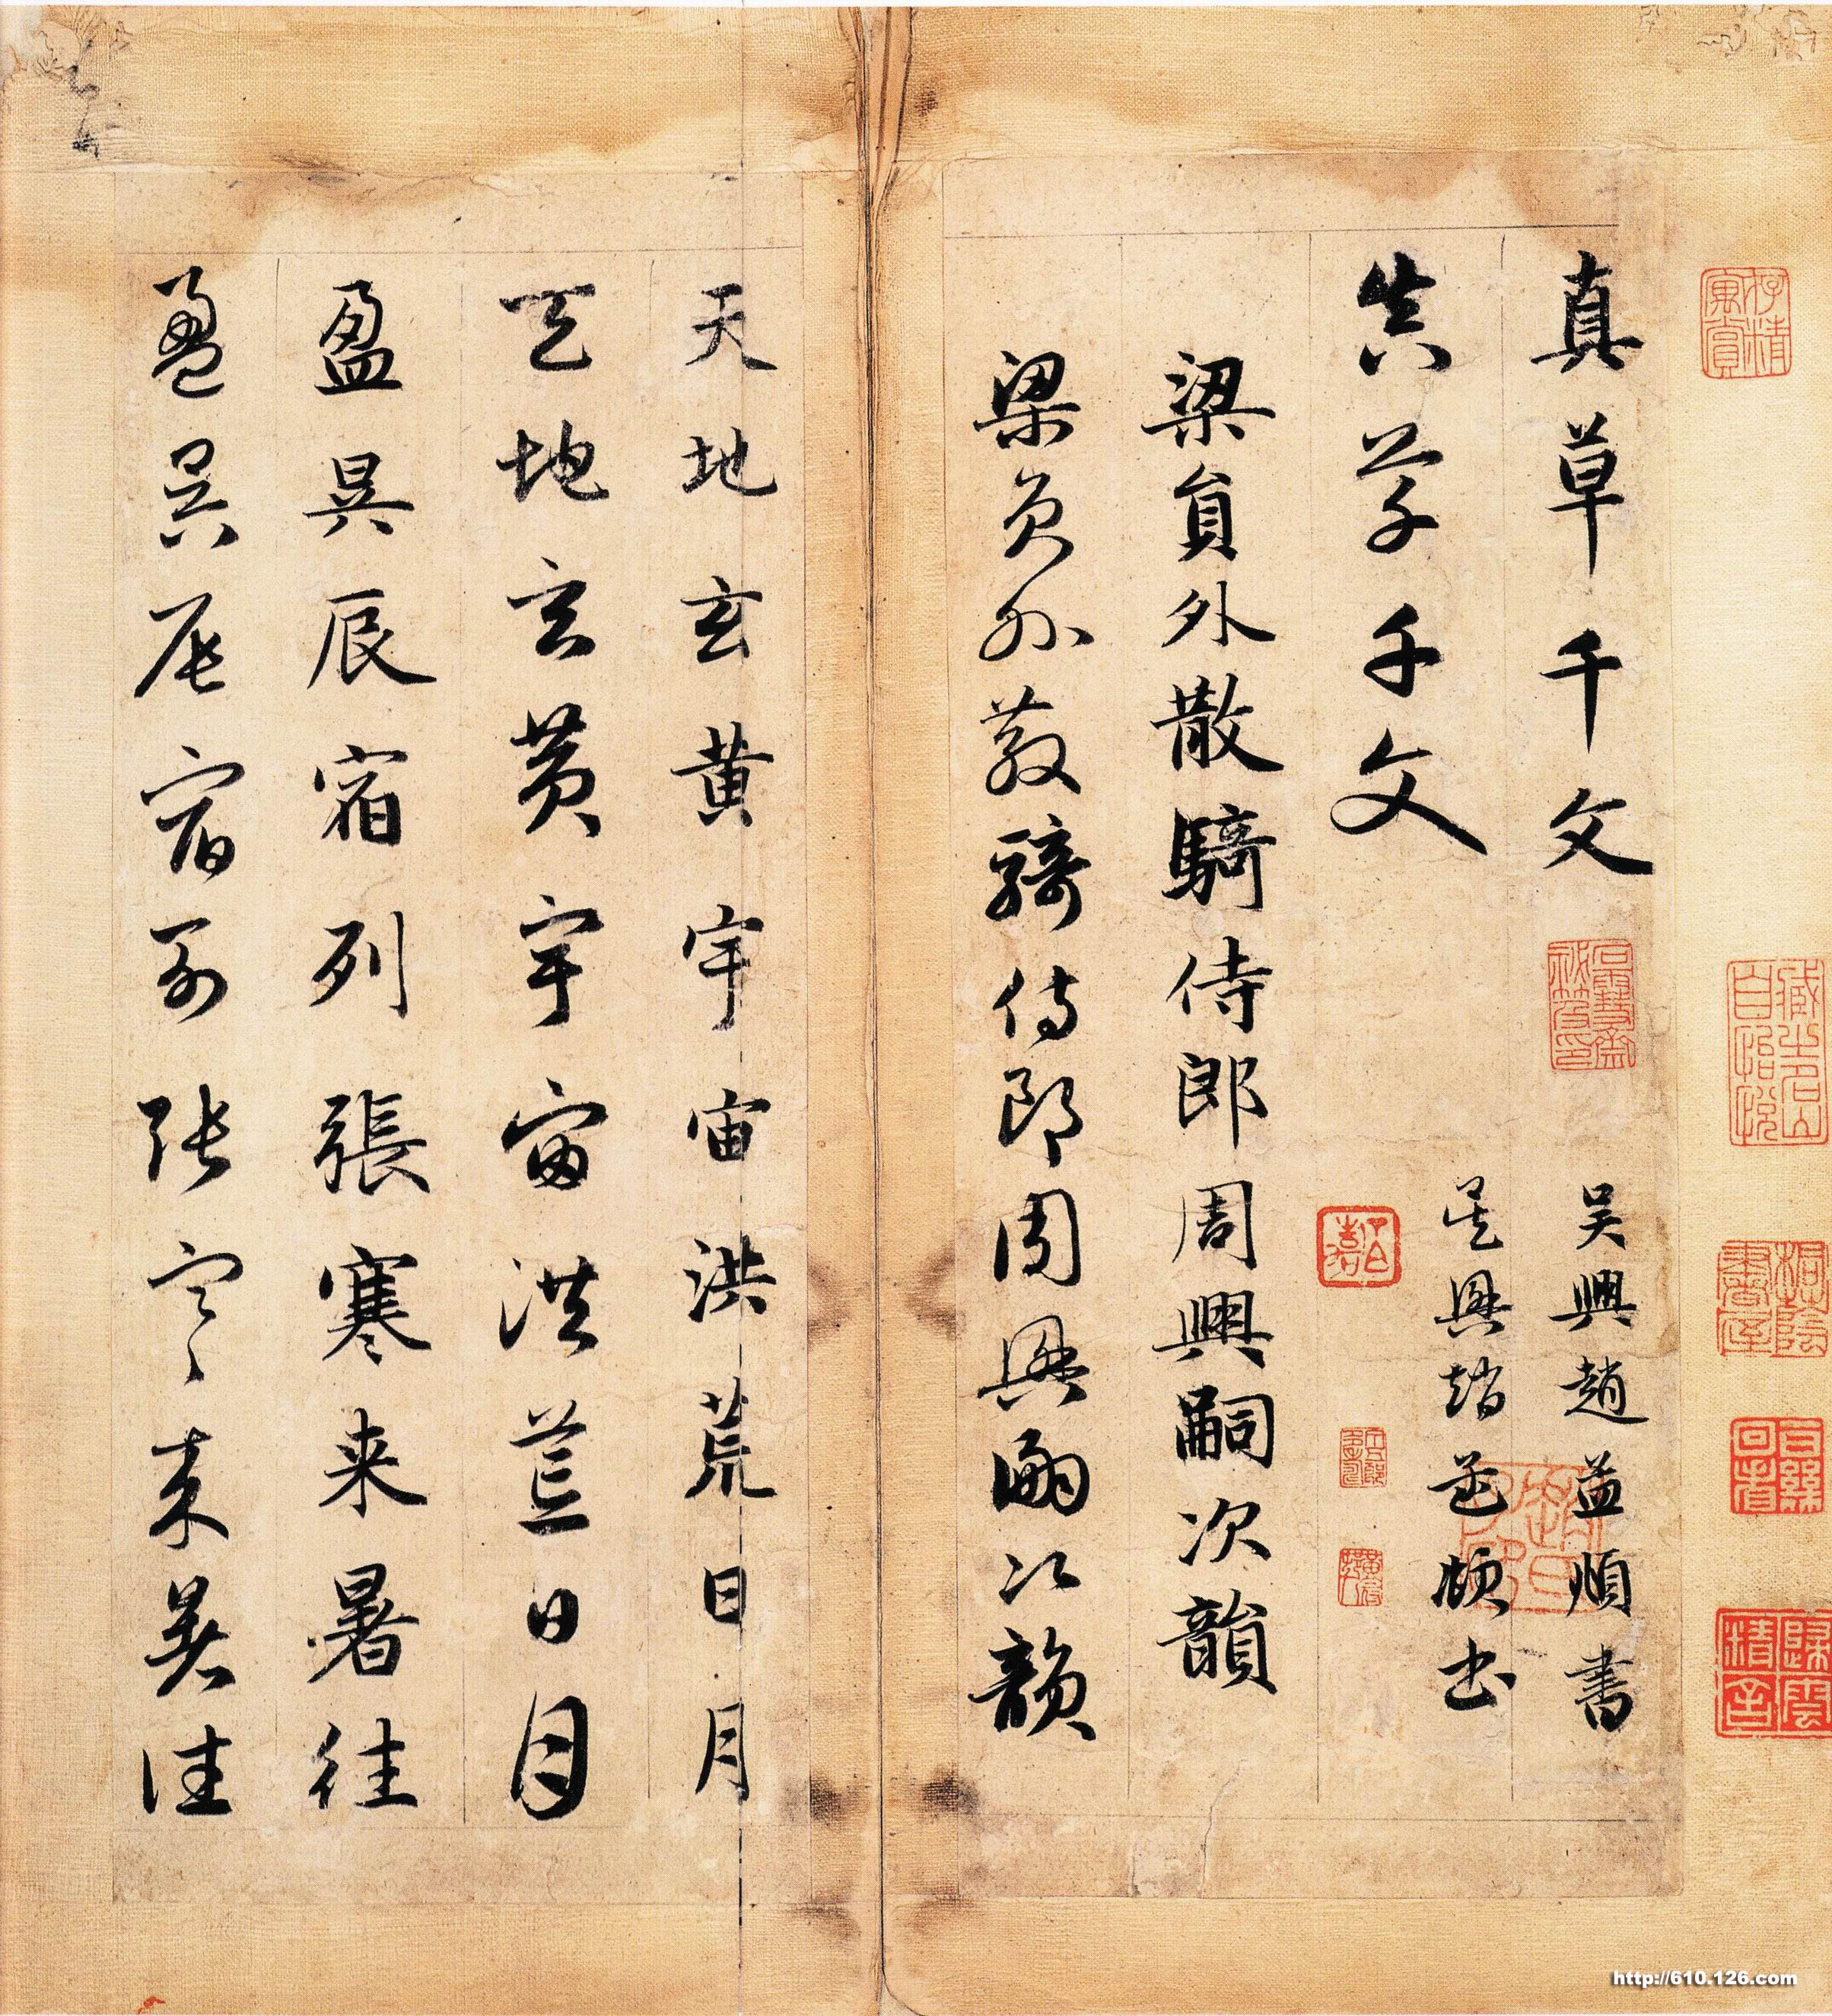 真草千文
吴興趙孟頫書
真草千文
吴興趙孟頫書
梁員外散騎侍郎周興嗣次韻
梁員外散騎侍郎周興嗣次韻
天地玄黄宇宙洪荒日月
天地玄黄宇宙洪荒日月
盈昃辰宿列張寒来暑往
盈昃辰宿列張寒来暑往
http://610.126.com